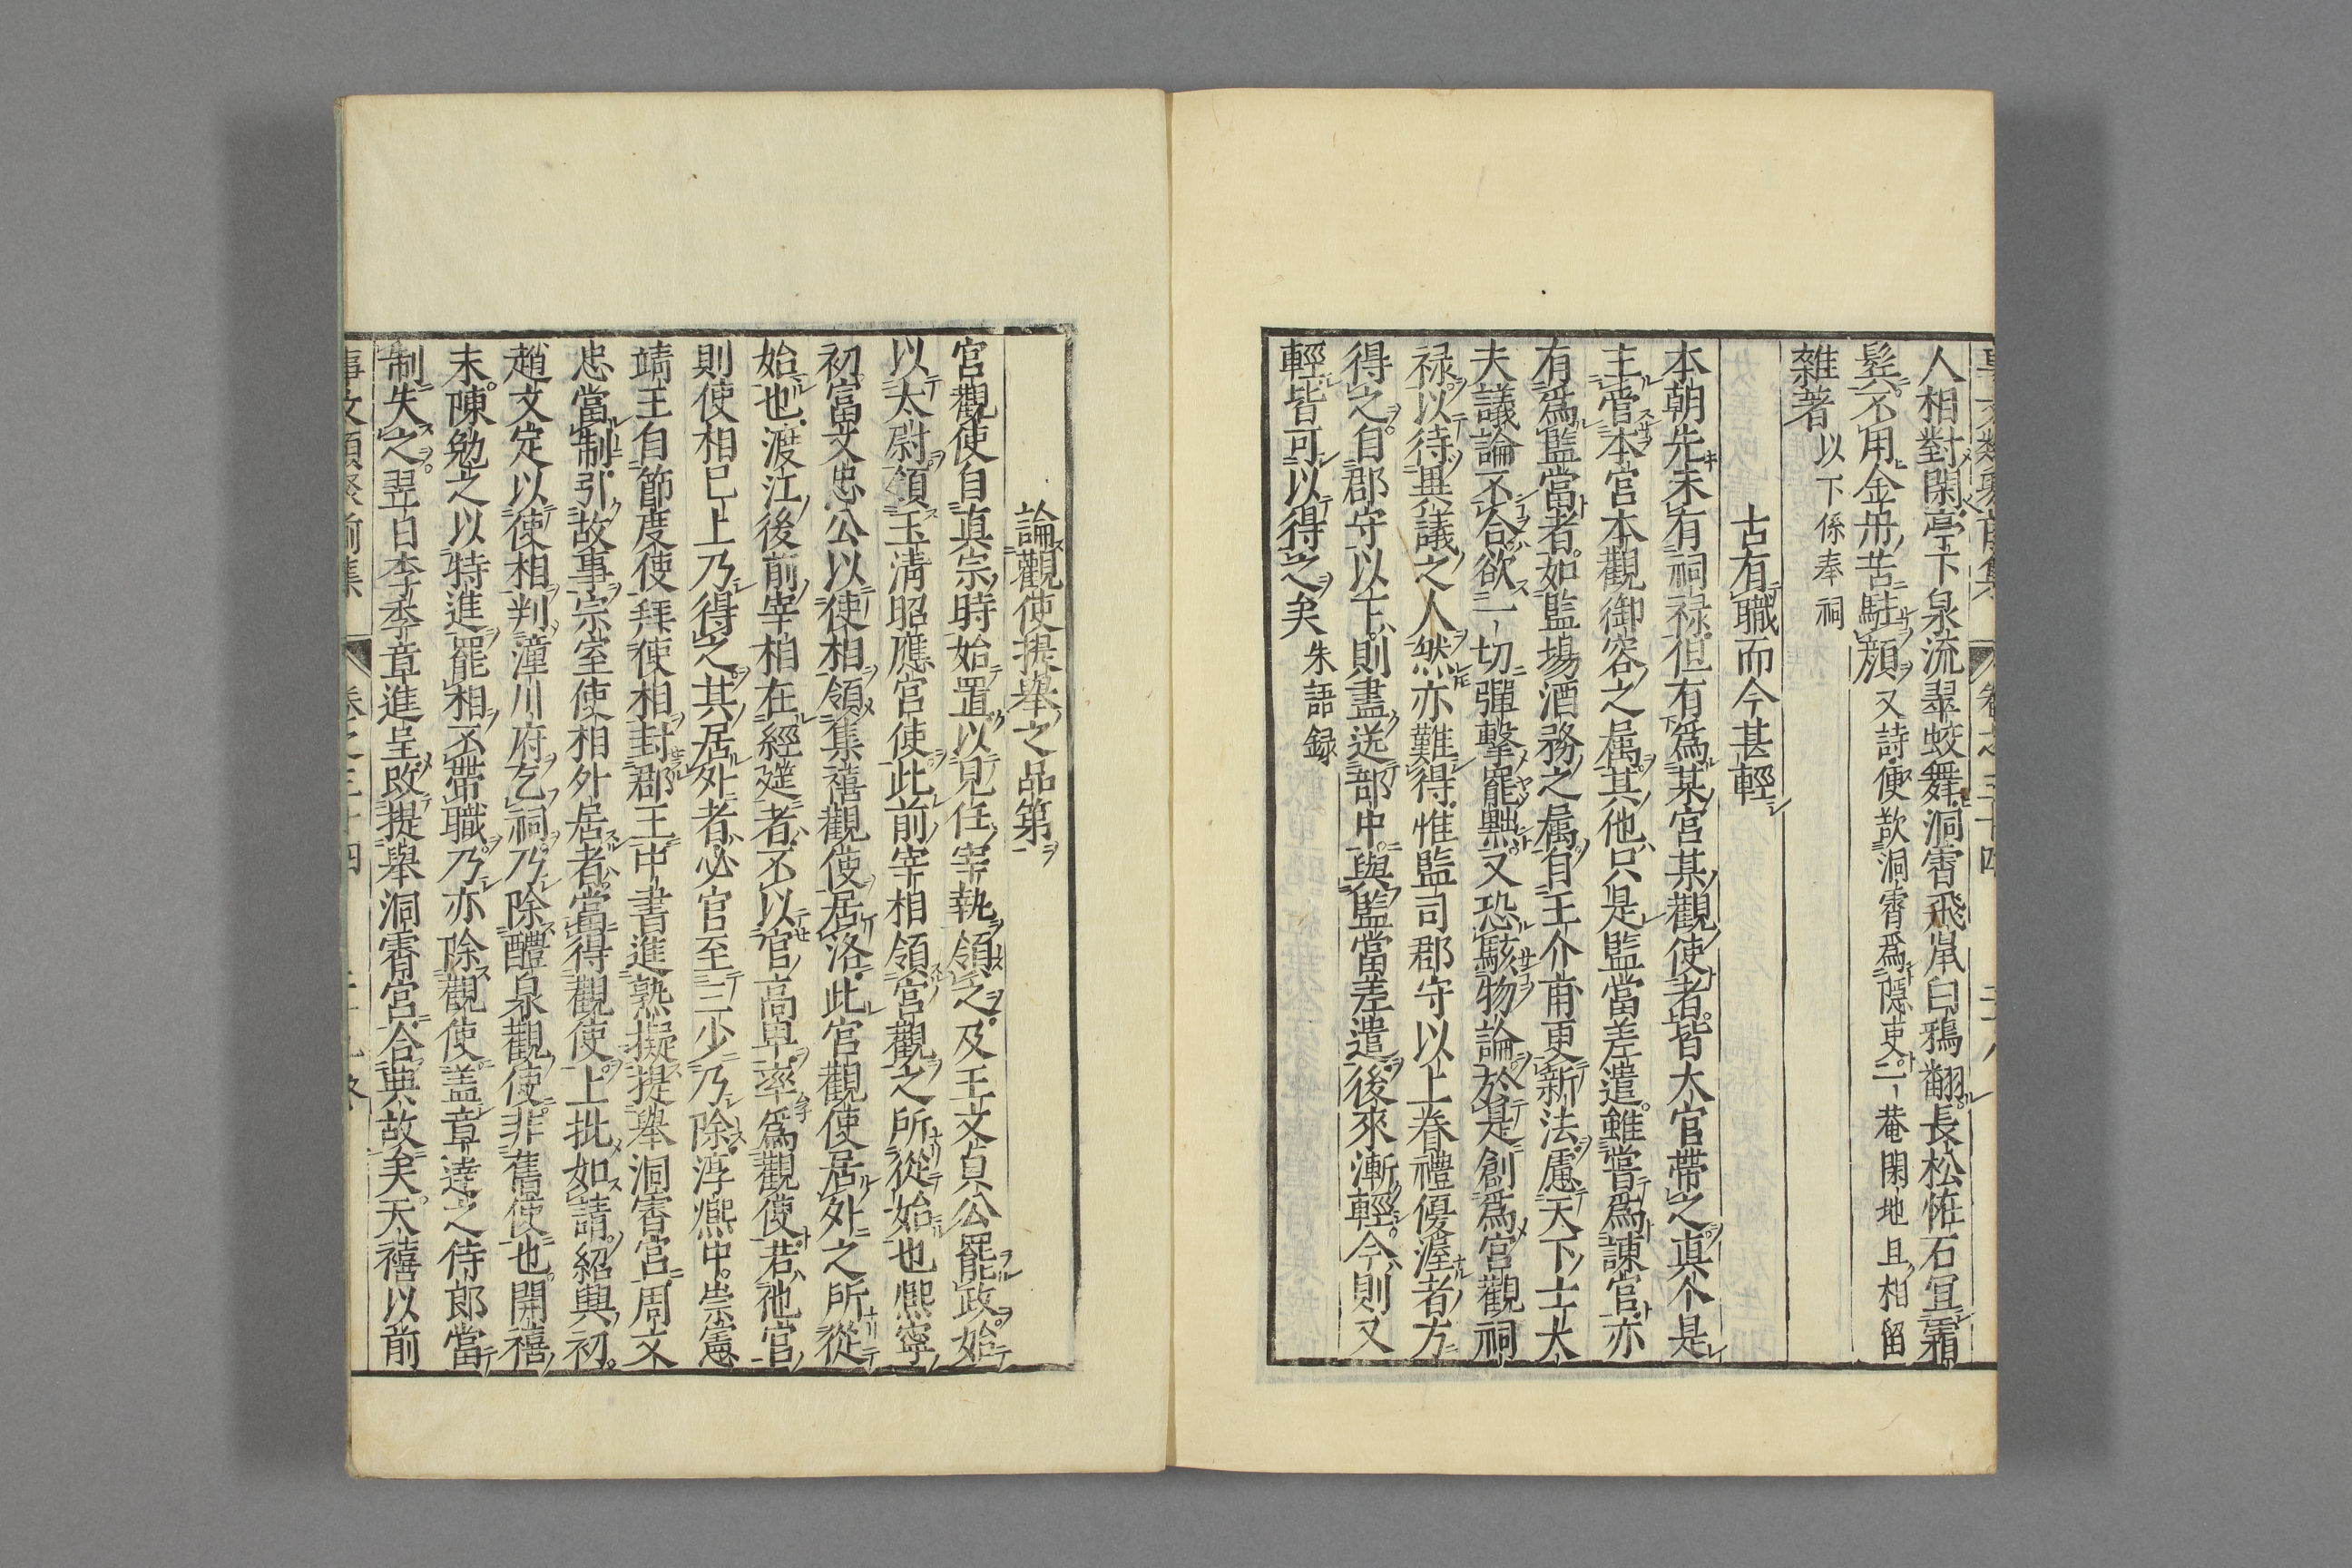 人相對閑亭下泉流翠蛟舞洞霄飛鼠白鴉翻長松恠石宜霜
鬂不用金丹苦駐顔又詩便欲洞霄爲隱吏一菴閑地且相留
雜著以下係奉祠
古有職而今甚輕
本朝先未有祠禄但有爲某宮某觀使者皆大官带之真个是
主管本宮本觀御容之属其他只是監當差遣雖嘗爲諫官亦
有爲監當者如監場酒務之属自王介甫更新法慮天下士大
夫議論不合欲一切彈擊罷黜又恐駭物論於是創爲宮觀祠
禄以待異議之人然亦難得惟監司郡守以上眷禮優渥者方
得之自郡守以下則盡送部中與監當差遣後來漸輕今則又
輕皆可以得之矣朱語録
論觀使提舉之品第
宮觀使自真宗時始置以見任宰執領之及王文貞公罷政始
以太尉領玉淸昭應宮使此前宰相領宮觀之所從始也熈寧
初富文忠公以使相領集禧觀使居洛此宮觀使居外之所從
始也渡江後前宰相在經筵者不以官高卑率爲觀使若他官
則使相已上乃得之其居外者必官至三少乃除淳熈中崇憲
靖王自節度使拜使相封郡王中書進熟擬提舉洞霄宮周文
忠當制引故事宗室使相外居者當得觀使上批如請紹興初
趙文定以使相判潼川府乞祠乃除醴泉觀使非舊使也開禧
末陳勉之以特進罷相不帶職乃亦除觀使盖章達之侍郎當
制失之翌日李季章進呈改提舉洞霄宮合典故矣天禧以前
事文類聚前集